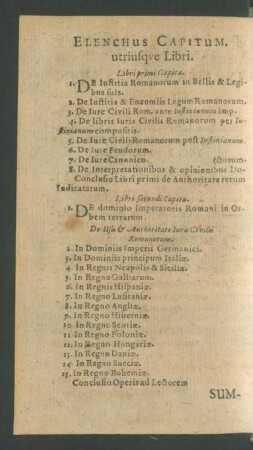 ELENCHUS CAPITUM,
utriusqve Libri.
Libri primi Capita.
1. DE Iustitia Romanorum in Bellis & Legi
bus suis.
2. De Iustitia & Encomiis Legum Romanorum.
3. De Iure Civili Rom. ante Iustinianum Imp.
4. De libris Iuris Civilis Romanorum per Iu
stinianum compositis.
5. De Iure Civili Romanorum post Iustinianum.
6. De Iure Feudorum.
7. De Iure Canonico. (ctorum.
8. De Interpretationibus & opinionibus Do-
Conclusio Libri primi de Authoritate rerum
Iudicatarum.
Libri secundi Capita.
1. DE dominio Imperatoris Romani in Or-
bem terrarum.
De Usu & Authoritate Iuris Civilis
Romanorum.
2. In Dominiis Imperii Germanici.
3. In Dominiis principum Italiæ.
4. In Regnis Neapolis & Siciliæ.
5. In Regno Galliarum.
6. In Regnis Hispaniæ.
7. In Regno Lusitaniæ.
8. In Regno Angliæ.
9. In Regno Hiberniæ.
10. In Regno Scotiæ.
11. In Regno Poloniæ.
12. In Regno Hungariæ.
13. In Regno Daniæ.
14. In Regno Sueciæ.
15. In Regno Bohemiæ.
Conclusio Operis ad Lectorem
SUM-